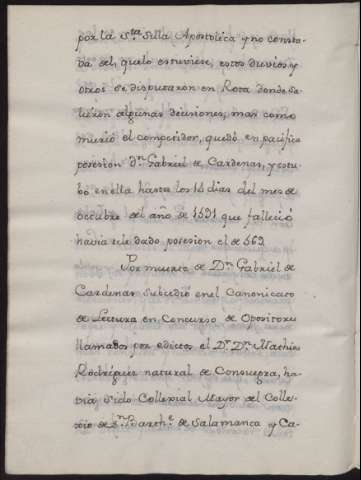 por la S.ta Silla Apostolica y no consta-
ba del, que lo estuviese, estos dubios, y
otros se disputaron en Rota donde sa-
lieron algunas decisiones, mas como
murió el competidor, quedó en pacifica
posesion D.n Gabriel de Cardenas, y estu-
bo en ella hasta los 14 dias del mes de
octubre del año de 1591 que falleció
havia sele dado posesion el de 569.
Por muerte de D.n Gabriel de
Cardenas subcedió en el Canonicato
de Lectura en Concurso de Opositores
llamados por edictos el D.r D.n Mathias
Rodriguez natural de Consuegra, ha-
via sido Collexial Mayor del Colle-
xio de S.n Barth.e de Salamanca y Ca-